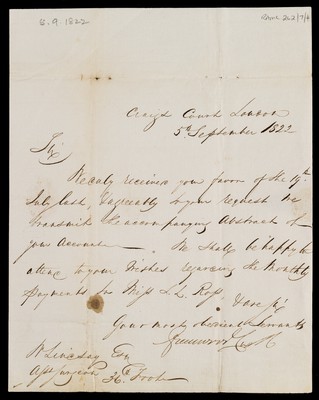 5.9.1822
Craigs Court London
5th September 1822
Sir
We duly received your favor of the 19th
July last, & agreeably to your request we
transmit the accompanying Abstract of
your Account — We shall be happy to
attend to your wishes regarding the Monthly
payments for Miss L. L. Ross,
& are Sir
Your most obedient Servants
W Lindsay Esq
Asst Surgeon 36th Foot